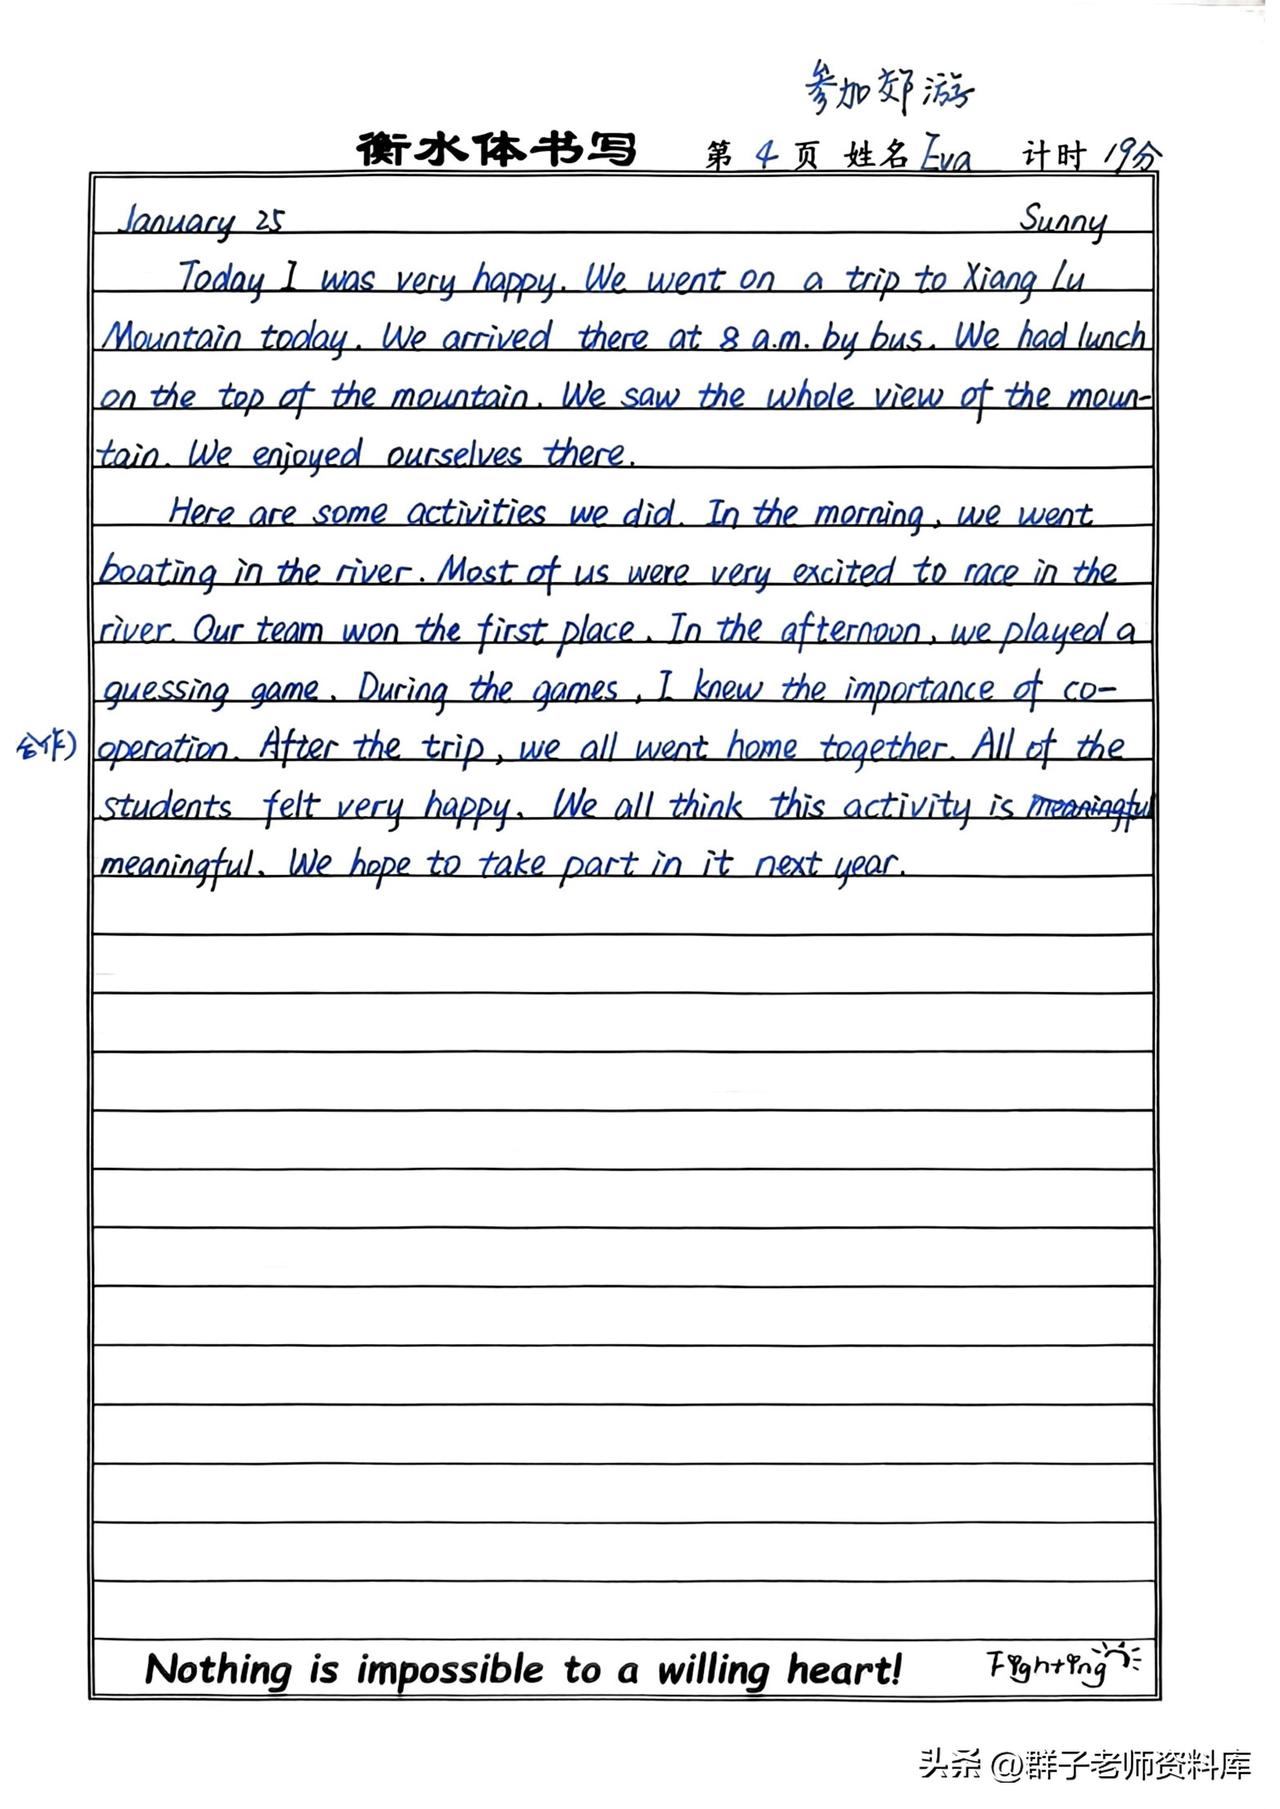 参加郊游
衡水体书写 第 4 页 姓名 Eva 计时 19分
January 25 Sunny
Today I was very happy. We went on a trip to Xiang Lu
Mountain today. We arrived there at 8 a.m. by bus. We had lunch
on the top of the mountain. We saw the whole view of the moun-
tain. We enjoyed ourselves there.
Here are some activities we did. In the morning, we went
boating in the river. Most of us were very excited to race in the
river. Our team won the first place. In the afternoon, we played a
guessing game. During the games, I knew the importance of co-
合作) operation. After the trip, we all went home together. All of the
students felt very happy. We all think this activity is meaningful
meaningful. We hope to take part in it next year.
Nothing is impossible to a willing heart! Fighting
头条 @群子老师资料库